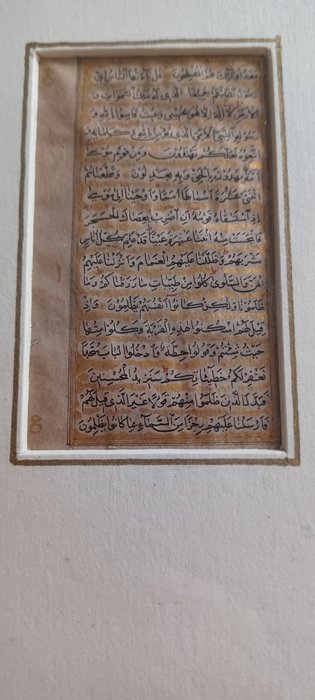 معه أولئك هم المفلحون قل يا أيها الناس إني
رسول الله إليكم جميعا الذي له ملك السموات و
الأرض لا إله إلا هو يحيي ويميت فآمنوا بالله و
رسوله النبي الأمي الذي يؤمن بالله وكلماته و
اتبعوه لعلكم تهتدون ومن قوم موسى
أمة يهدون بالحق وبه يعدلون وقطعناهم
اثنتي عشرة أسباطا أمما وأوحينا إلى موسى
إذ استسقاه قومه أن اضرب بعصاك الحجر
فانبجست منه اثنتا عشرة عينا قد علم كل أناس
مشربهم وظللنا عليهم الغمام وأنزلنا عليهم
المن والسلوى كلوا من طيبات ما رزقناكم وما
ظلمونا ولكن كانوا أنفسهم يظلمون وإذ
قيل لهم اسكنوا هذه القرية وكلوا منها
حيث شئتم وقولوا حطة وادخلوا الباب سجدا
نغفر لكم خطيئاتكم سنزيد المحسنين
فبدل الذين ظلموا منهم قولا غير الذي قيل لهم
فأرسلنا عليهم رجزا من السماء بما كانوا يظلمون